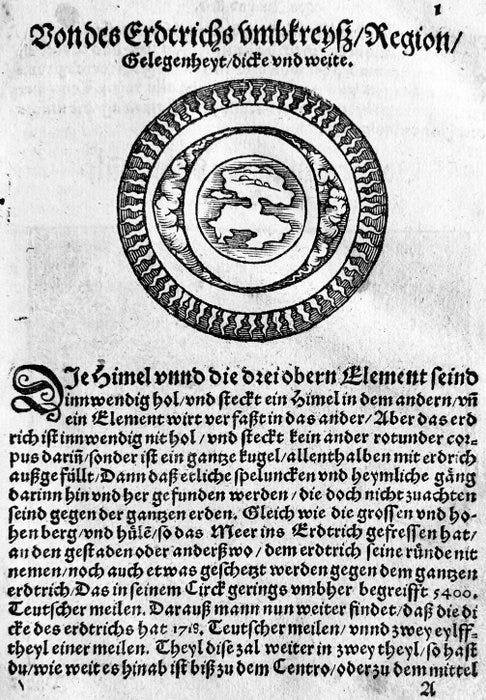 1
Von des Erdtrichs vmbkreyß/Region/
Gelegenheyt/dicke vnd weite.
DJe Himel vnnd die drei obern Element seind
innwendig hol/vnd steckt ein Himel in dem andern/vñ
ein Element wirt verfaßt in das ander/Aber das erd
rich ist innwendig nit hol/vnd steckt kein ander rotunder cor⸗
pus dariñ/sonder ist ein gantze kugel/allenthalben mit erdrich
außgefüllt/Dann daß etliche speluncken vnd heymliche gäng
darinn hin vnd her gefunden werden/die doch nicht zuachten
seind gegen der gantzen erden. Gleich wie die grossen vnd ho⸗
hen berg/vnd hülẽ/so das Meer ins Erdtrich gefressen hat/
an den gestaden oder anderßwo/dem erdtrich seine ründe nit
nemen/noch auch etwas geschetzt werden gegen dem gantzen
erdtrich/Das in seinem Circk gerings vmbher begreifft 5400.
Teutscher meilen. Darauß mann nun weiter findet/daß die di
cke des erdtrichs hat 1718. Teutscher meilen/vnnd zwey eylff⸗
theyl einer meilen. Theyl dise zal weiter in zwey theyl/so hast
du/wie weit es hinab ist biß zu dem Centro/oder zu dem mittel
A